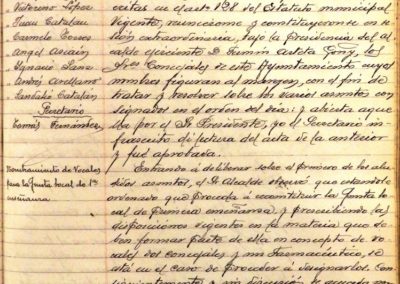 Victoriano López
Juan Catalán
Carmelo Torres
Angel Ascain
Ignacio Sanz
Andrés Arellano
Candido Catalán
Secretario
Tomás Fernández
Nombramiento de Vocales
para la Junta local de 1ª
enseñanza
critas en el art. 128 del Estatuto municipal
vigente, reunieronse y constituyeronse en se-
sión extraordinaria, bajo la Presidencia del Al-
calde ejerciente D. Fermín los
Sres Concejales de este Ayuntamiento cuyos
nombres figuran al margen, con el fin de
tratar y resolver sobre los varios asuntos con-
signados en el orden del día: y abierta aque-
lla por el Sr Presidente, yo el Secretario in-
frascrito dí lectura del acta de la anterior
y fué aprobada.
Entrando á deliberar sobre el primero de los alu-
didos asuntos, el Sr Alcalde observó que estando
ordenado que proceda á reconstituir la Junta lo-
cal de Primera enseñanza, y prescribiendo las
disposiciones vigentes en la materia que de-
ben formar parte de ella en concepto de vo-
cales dos concejales y un Farmacéutico, se
está en el caso de proceder á designarlos. Con-